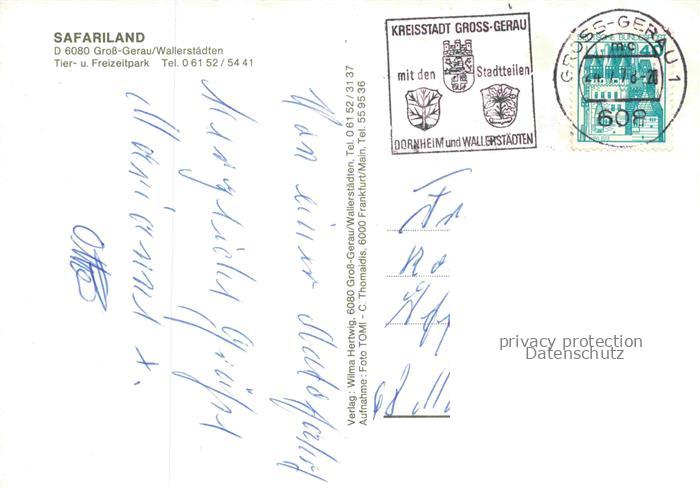 SAFARILAND
D 6080 Groß-Gerau/Wallerstädten
Tier- u. Freizeitpark Tel. 0 61 52 / 54 41
KREISSTADT GROSS-GERAU
mit den Stadtteilen
DORNHEIM und WALLERSTÄDTEN
GROSS-GERAU 1
mc
608
40
Von einer
Grüße
Marianne +
Otto
Verlag: Wilma Hertwig, 6080 Groß-Gerau/Wallerstädten, Tel. 0 61 52 / 31 37
Aufnahme: Foto TOMI - C. Thomaidis, 6000 Frankfurt/Main, Tel. 55 95 36
68
privacy protection
Datenschutz